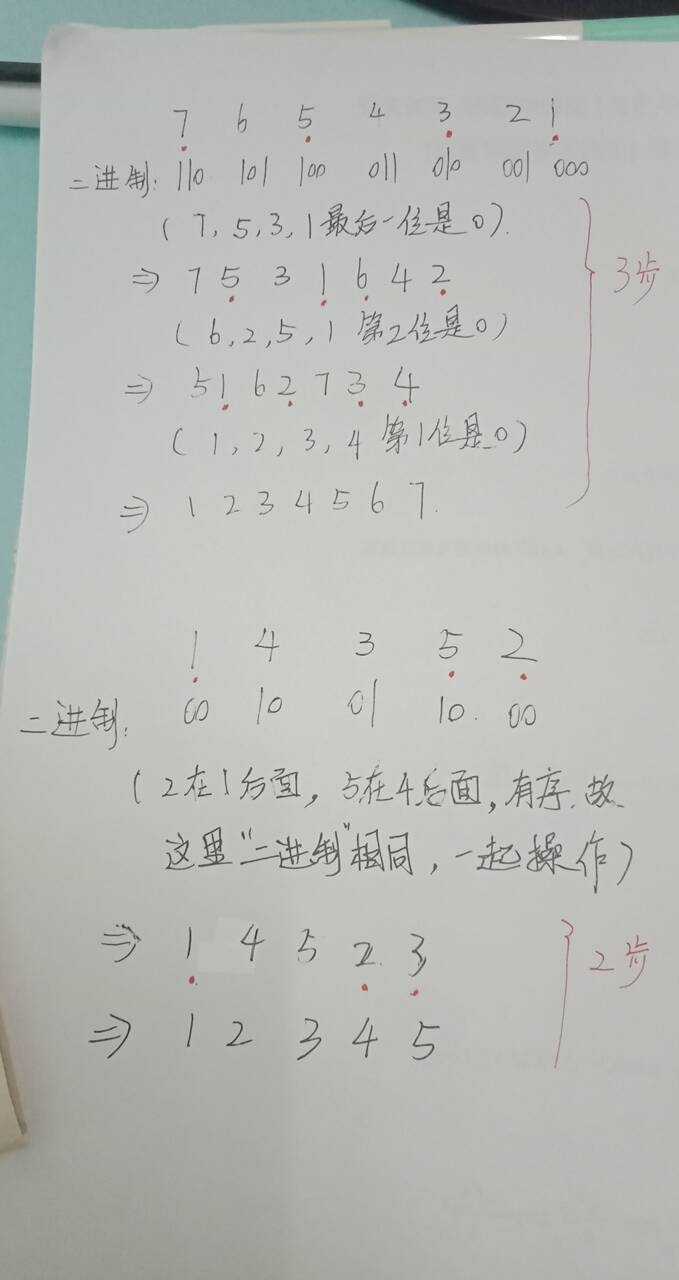 7 6 5 4 3 2 1
二进制: 110 101 100 011 010 001 000
(7,5,3,1最后一位是0).
⇒ 7 5 3 1 6 4 2
(6,2,5,1 第2位是0)
⇒ 5 1 6 2 7 3 4
(1,2,3,4 第1位是0)
⇒ 1 2 3 4 5 6 7.
3步
1 4 3 5 2
二进制: 00 10 01 10. 00
(2在1后面,5在4后面,有序.故
这里"二进制"相同,一起操作)
⇒ 1 4 5 2 3
⇒ 1 2 3 4 5
2步